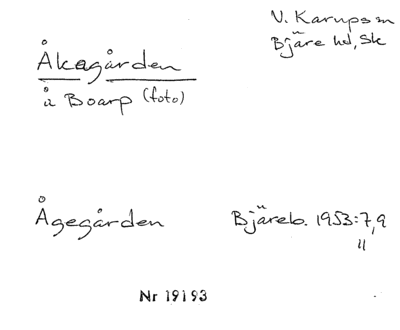 V. Karups sn
Bjäre hd, Sk
Åkagården
å Boarp (foto)
Ågegården Bjäreb. 1953:7,9
"
Nr 19193